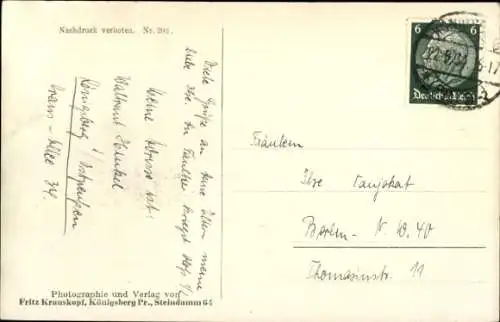 Nachdruck verboten. Nr. 201.
Viele Grüße an Deine Eltern meine
liebe Ilse.
meine Adresse ist:
Waltraut Henkel
Königsberg / Ostpreußen
Hans- Allee 34.
Photographie und Verlag von
Fritz Krauskopf, Königsberg Pr., Steindamm 64
6 6
Deutsches Reich
Fräulein
Ilse Tanjokat
Berlin - N. W. 40
Thomasiusstr. 11